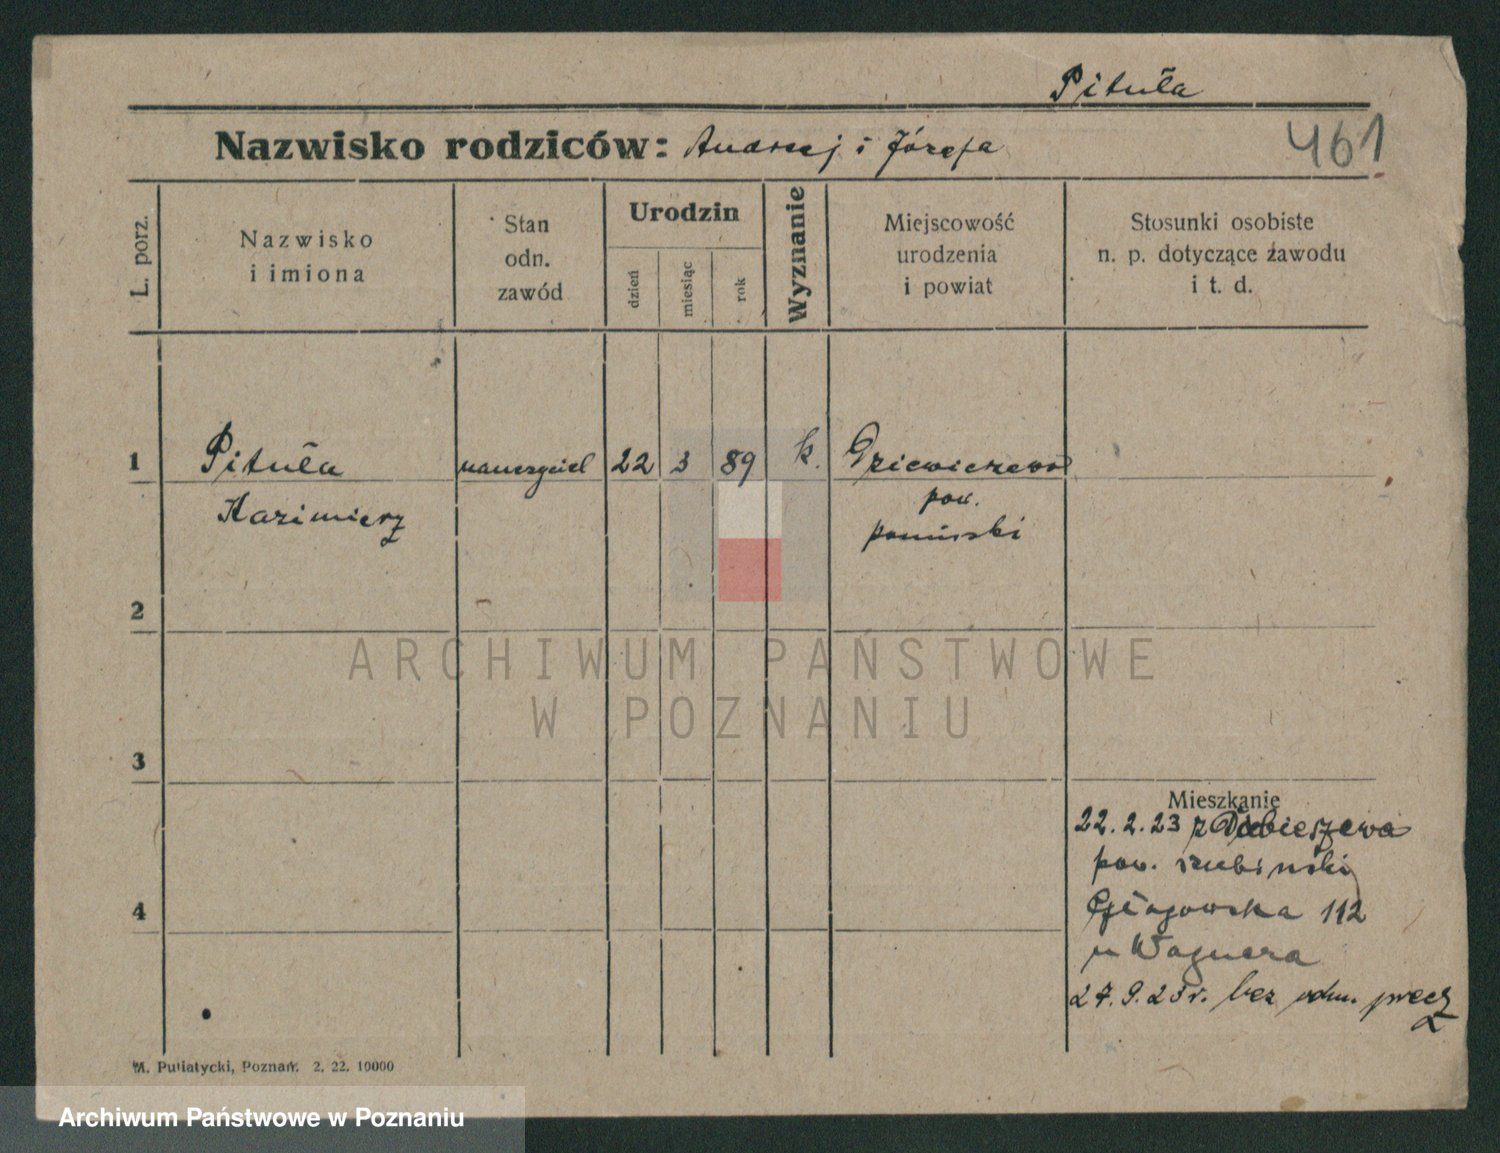 Pituła
Nazwisko rodziców: Andrzej i Józefa
461
L. porz.
Nazwisko
i imiona
Stan
odn.
zawód
Urodzin
dzień
miesiąc
rok
Wyznanie
Miejscowość
urodzenia
i powiat
Stosunki osobiste
n. p. dotyczące zawodu
i t. d.
1 Pituła nauczyciel 22 3 89 k.
Kazimierz pow.
2
3
4
ARCHIWUM PAŃSTWOWE
W POZNANIU
Mieszkanie
22.2.23 z
pow. szubiński
Głogowska 112
u Wagnera
27.9.23r. bez odm. precz
M. Putiatycki, Poznań. 2. 22. 10000
Archiwum Państwowe w Poznaniu